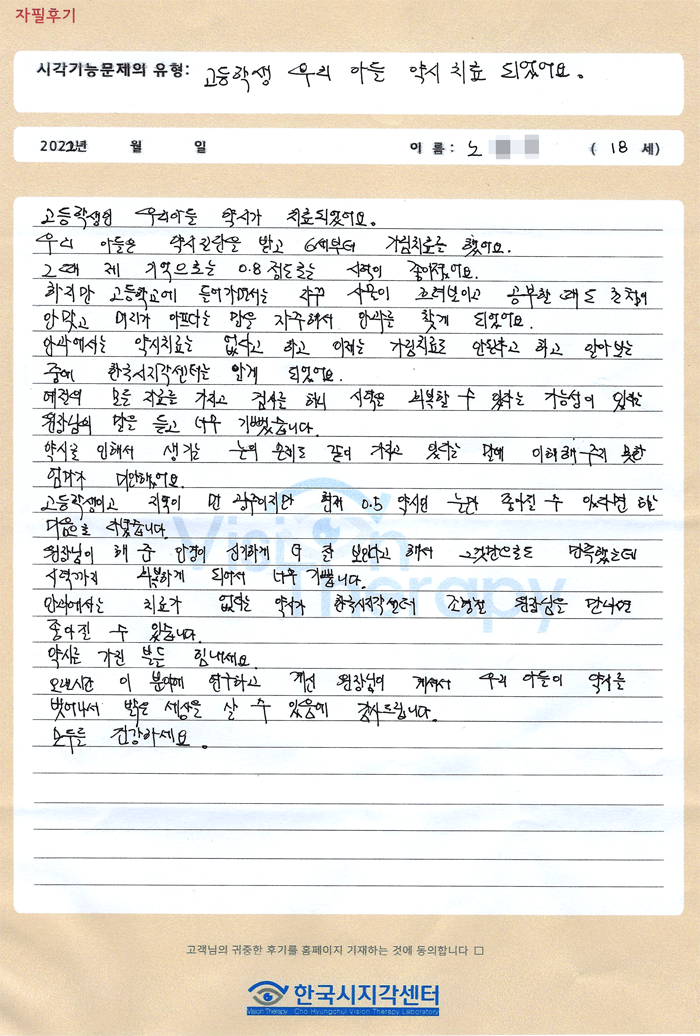 자필후기
시각기능문제의 유형: 고등학생 우리 아들 약시 치료 되었어요.
2022년 월 일 이 름 : 노 ( 18 세)
고등학생인 우리아들 약시가 치료되었어요.
우리 아들은 약시진단을 받고 6세부터 가림치료를 했어요.
그때 제 기억으로는 0.8 정도로는 시력이 좋아졌어요.
하지만 고등학교에 들어가면서는 자꾸 사물이 흐려보이고 공부할 때도 초점이
안맞고 머리가 아프다는 말을 자주해서 안과를 찾게 되었어요.
안과에서는 약시치료는 없다고 하고 이제는 가림치료도 안된다고 하고 알아보는
중에 한국시지각센터를 알게 되었어요.
예전의 모든 자료를 가지고 검사를 하니 시력은 회복할 수 있다는 가능성이 있다는
원장님의 말을 듣고 너무 기뻤습니다.
약시로 인해서 생기는 눈의 문제도 같이 가지고 있다는 말에 이해해 주지 못한
엄마가 미안했어요.
고등학생이고 지역이 먼 광주이지만 현재 0.5 약시인 눈이 좋아질 수 있다면 하는
마음으로 다녔습니다.
원장님이 해 준 안경이 신기하게 더 잘 보인다고 해서 그것만으로도 만족했는데
시력까지 회복하게 되어서 너무 기쁩니다.
안과에서는 치료가 없다는 약시가 한국시지각센터 조현철 원장님을 만나면
좋아질 수 있습니다.
약시를 가진 분들 힘내세요.
오랜시간 이 분야에 연구하고 계신 원장님이 계셔서 우리 아들이 약시를
벗어나서 밝은 세상을 살 수 있음에 감사드립니다.
모두들 건강하세요.
Vision
Therapy
고객님의 귀중한 후기를 홈페이지 기재하는 것에 동의합니다 □
한국시지각센터
Vision Therapy Cho Hyungchul Vision Therapy Laboratory